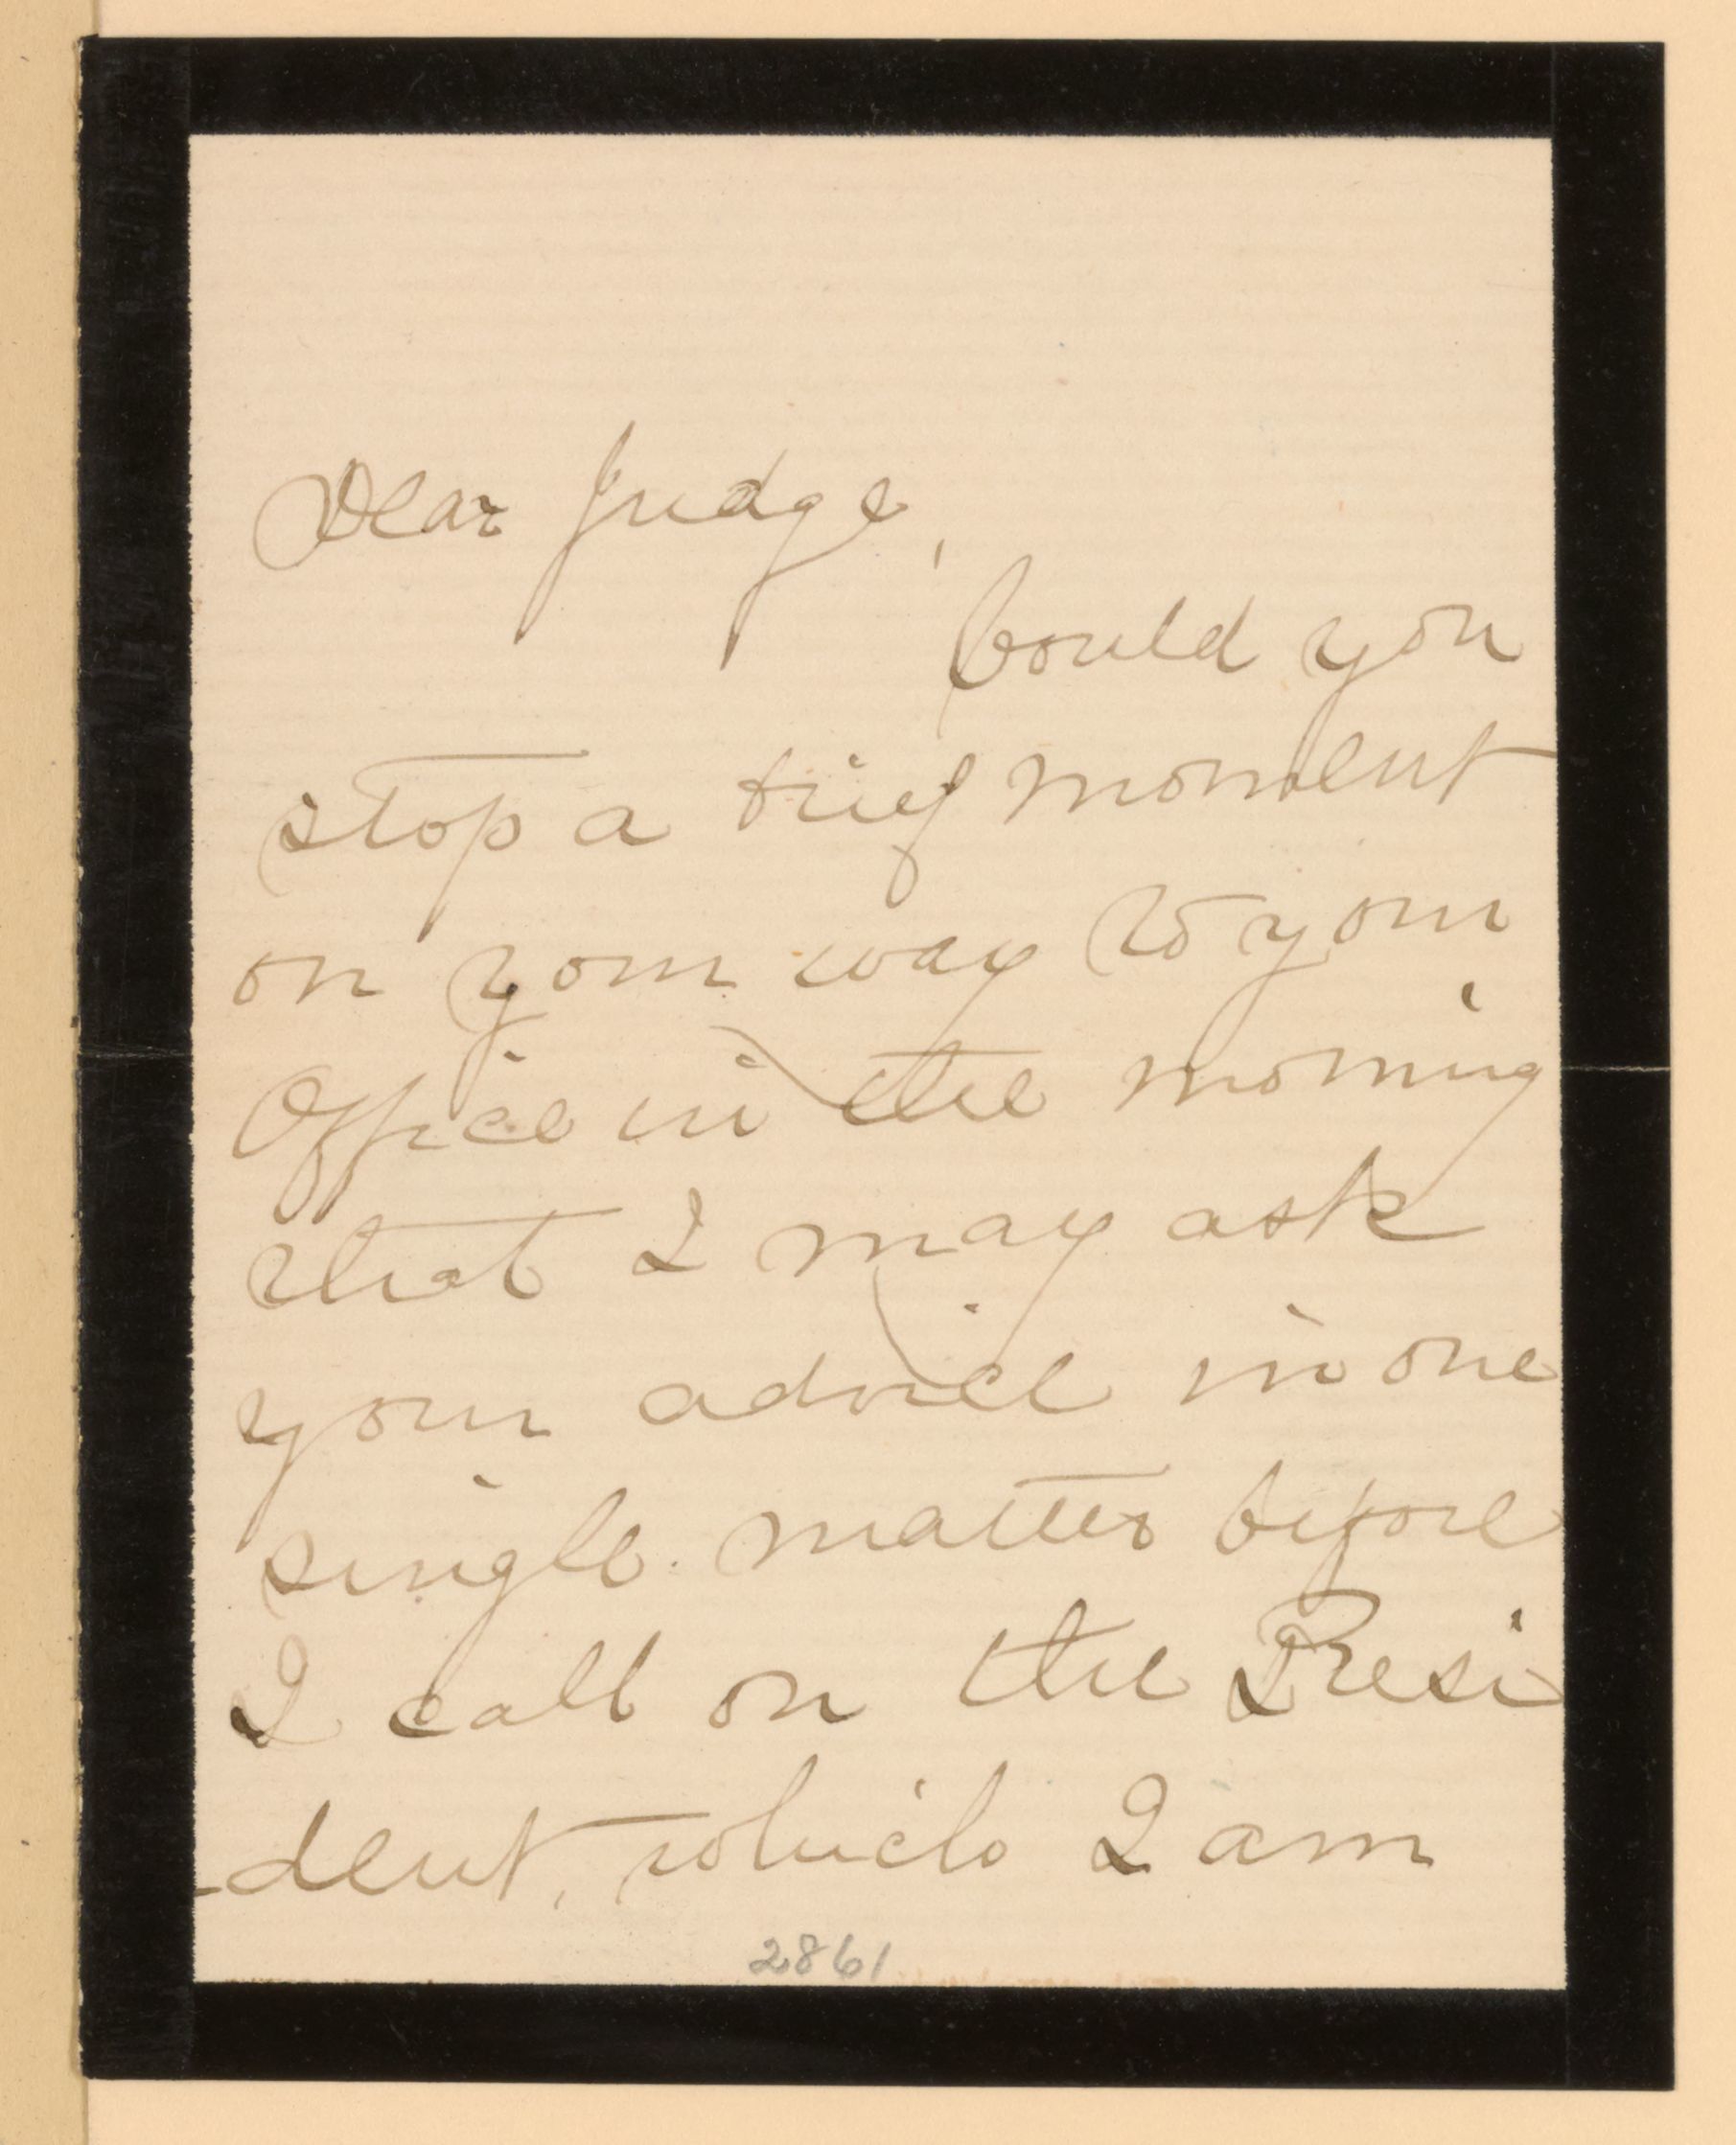 Dear Judge,
Could you
stop a brief moment
on your way to your
Office in the morning
that I may ask
your advice in one
single matter before
I call on the Presi
-dent, which I am
2861